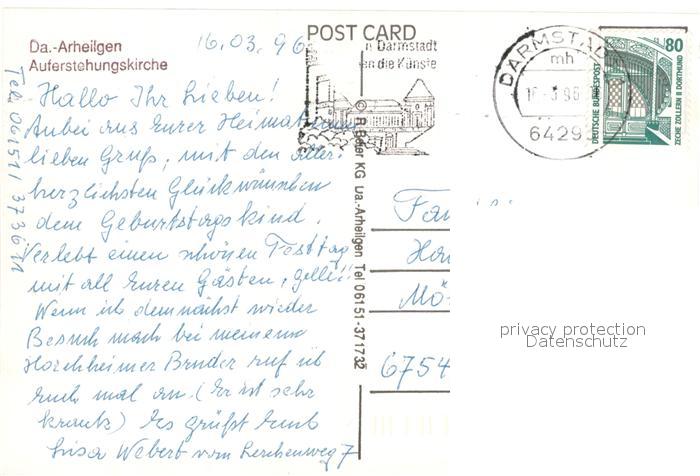 POST CARD
Da.-Arheilgen
Auferstehungskirche
16.03.96
Hallo Ihr Lieben!
Anbei aus Eurer Heimat einen
lieben Gruß, mit den aller-
herzlichsten Glückwünschen
dem Geburtstagskind.
Verlebt einen schönen Festtag
mit all Euren Gästen, gelle!!
Wenn ich demnächst wieder
Besuch mach bei meinem
Horchheimer Bruder ruf ich
Euch mal an. (Er ist sehr
krank) Es grüßt Euch
Luisa Webert vom Lerchenweg 7
Tel. 06151/373611
n Darmstadt
en die Künste
© R. Beter KG Da.-Arheilgen Tel 06151-371732
DARMSTADT
mh
16-3.96
6429
80
DEUTSCHE BUNDESPOST
ZECHE ZOLLERN II DORTMUND
Fam
Mö
6754
privacy protection
Datenschutz